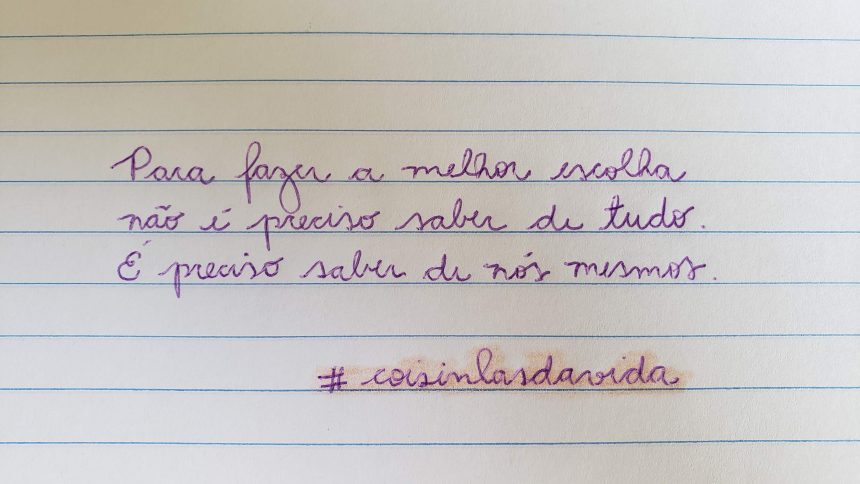 Para fazer a melhor escolha
não é preciso saber de tudo.
É preciso saber de nós mesmos.
#coisinhasdavida